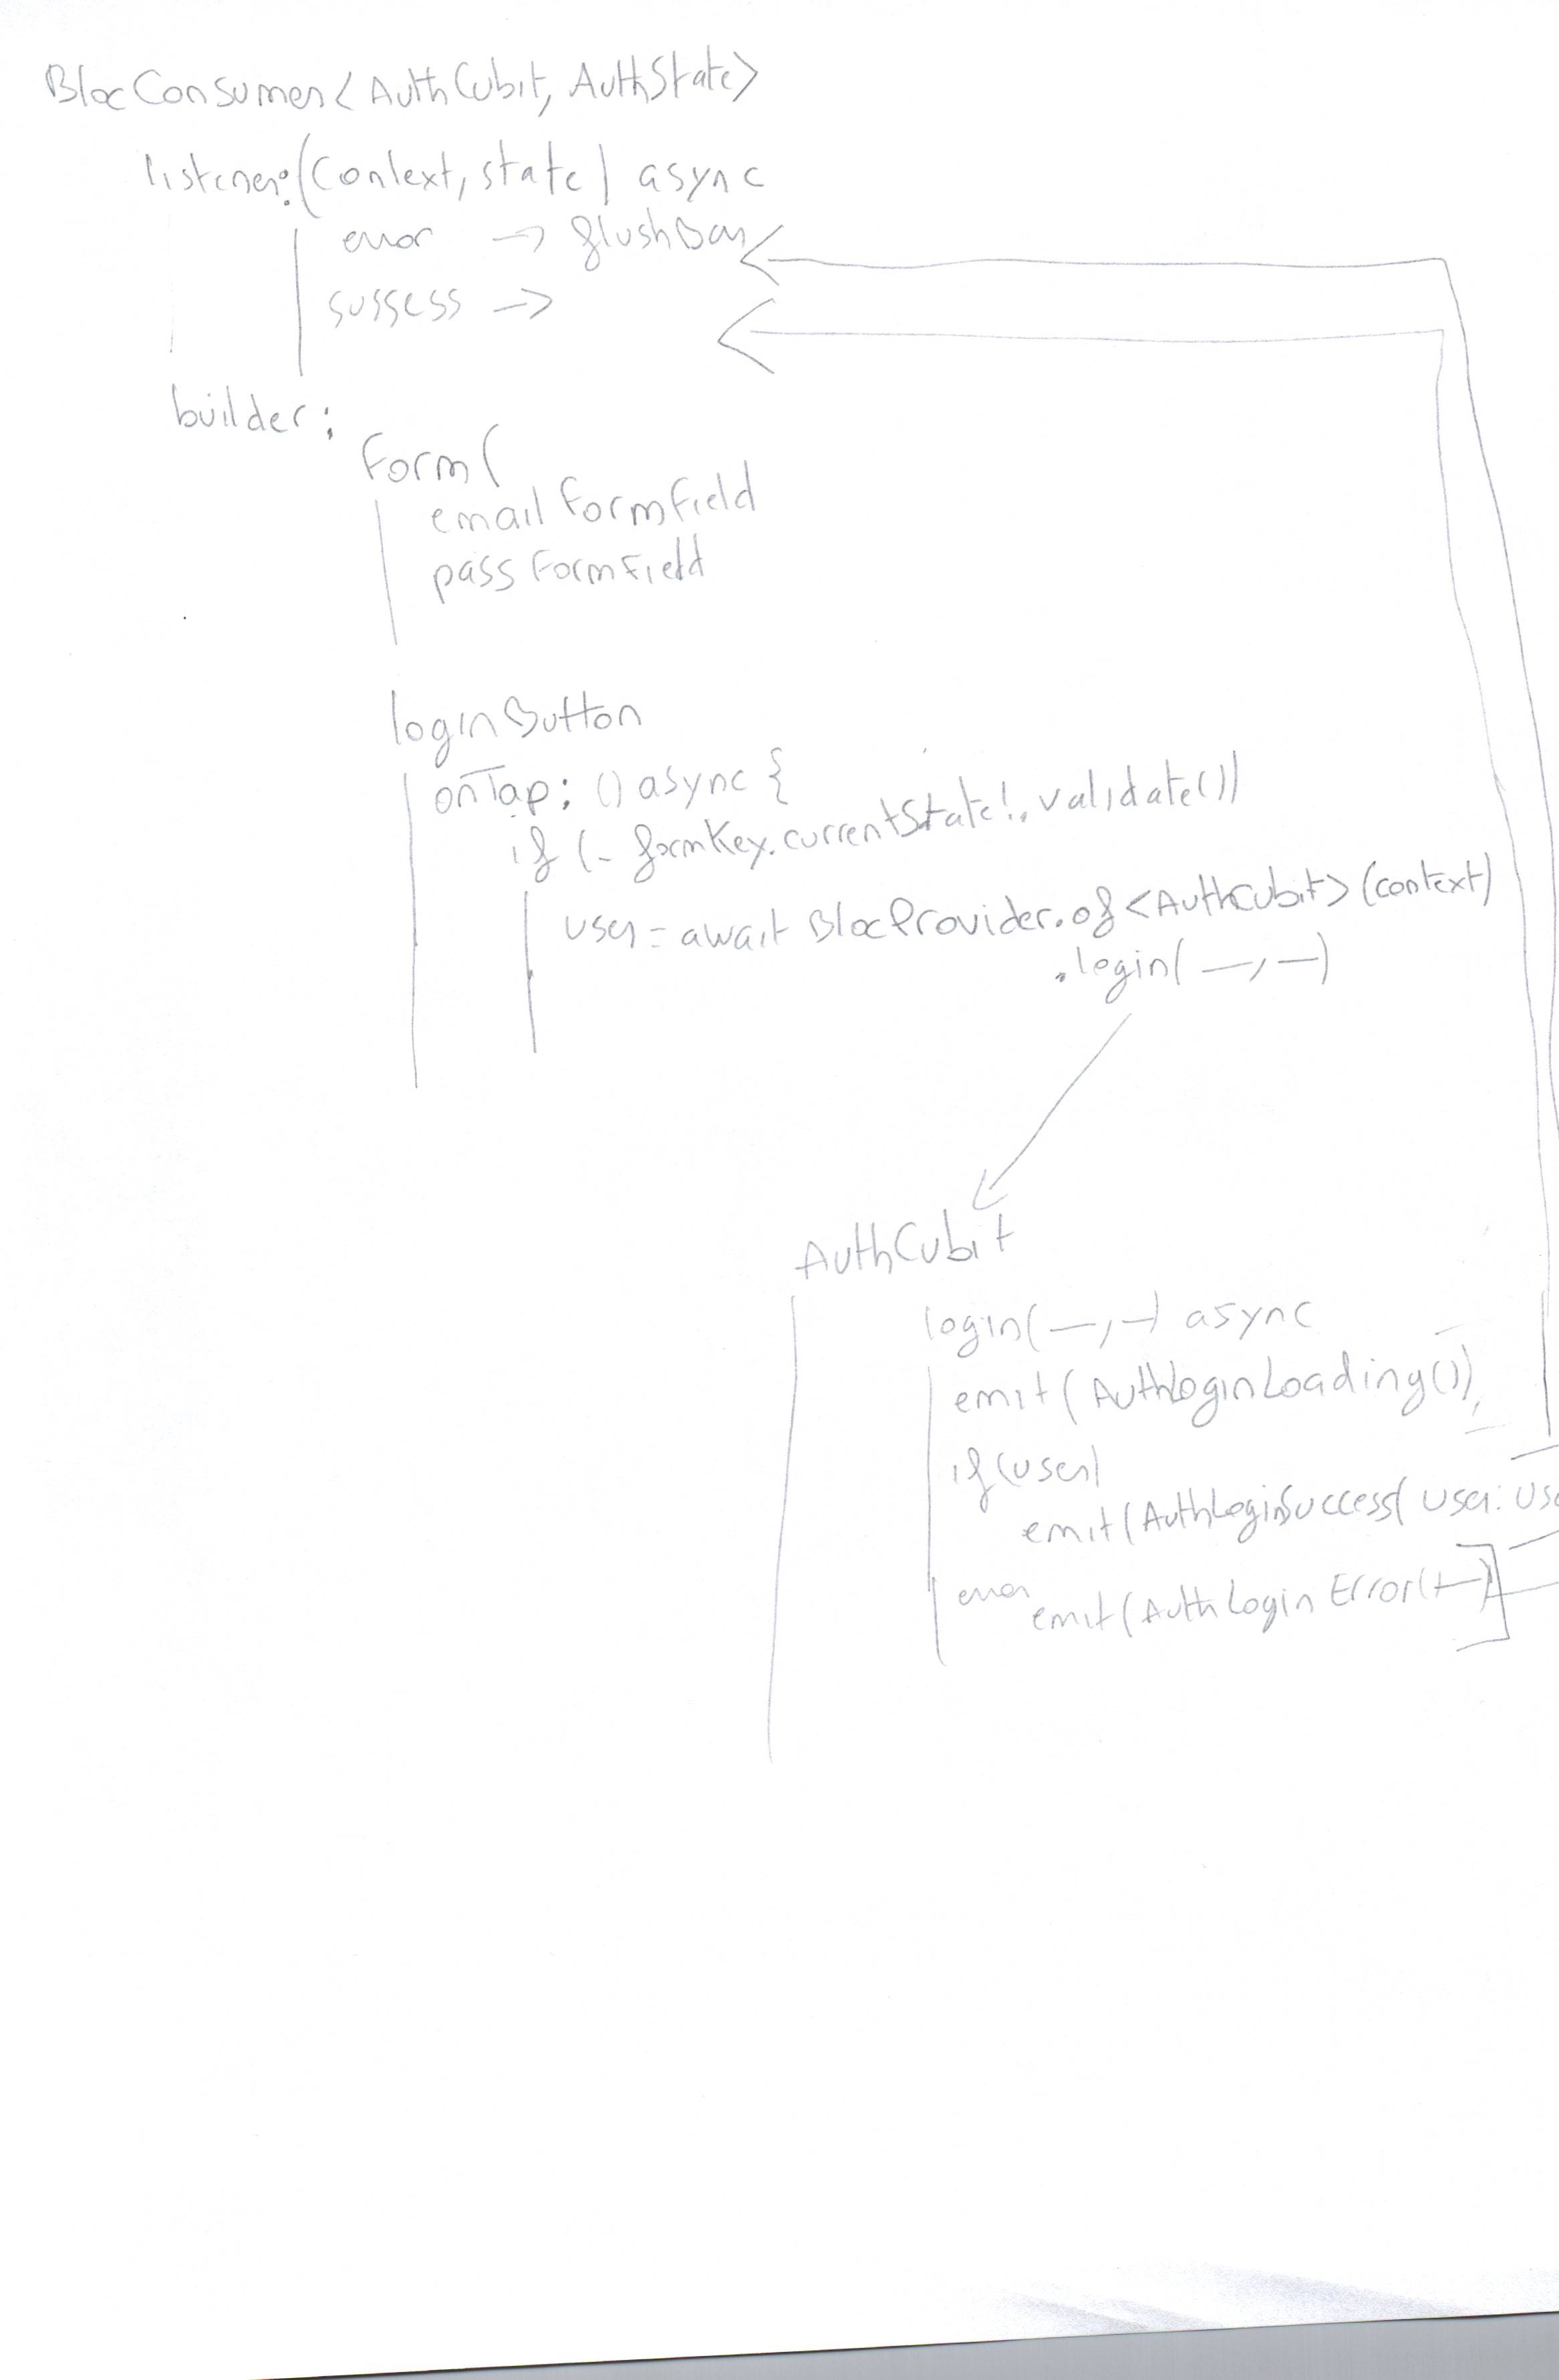 BlocConsumer< AuthCubit, AuthState>
listener:(Context, state) async
error -> flushBar
sussess ->
builder:
Form(
email FormField
pass FormField
loginButton
onTap: () async {
if (_formKey.currentState!.validate())
user = await BlocProvider.of<AuthCubit>(context)
.login( —, —)
AuthCubit
login( —, —) async
emit( AuthLoginLoading())
if(user)
emit(AuthLoginSuccess( user: use
error
emit(AuthLogin Error(—)